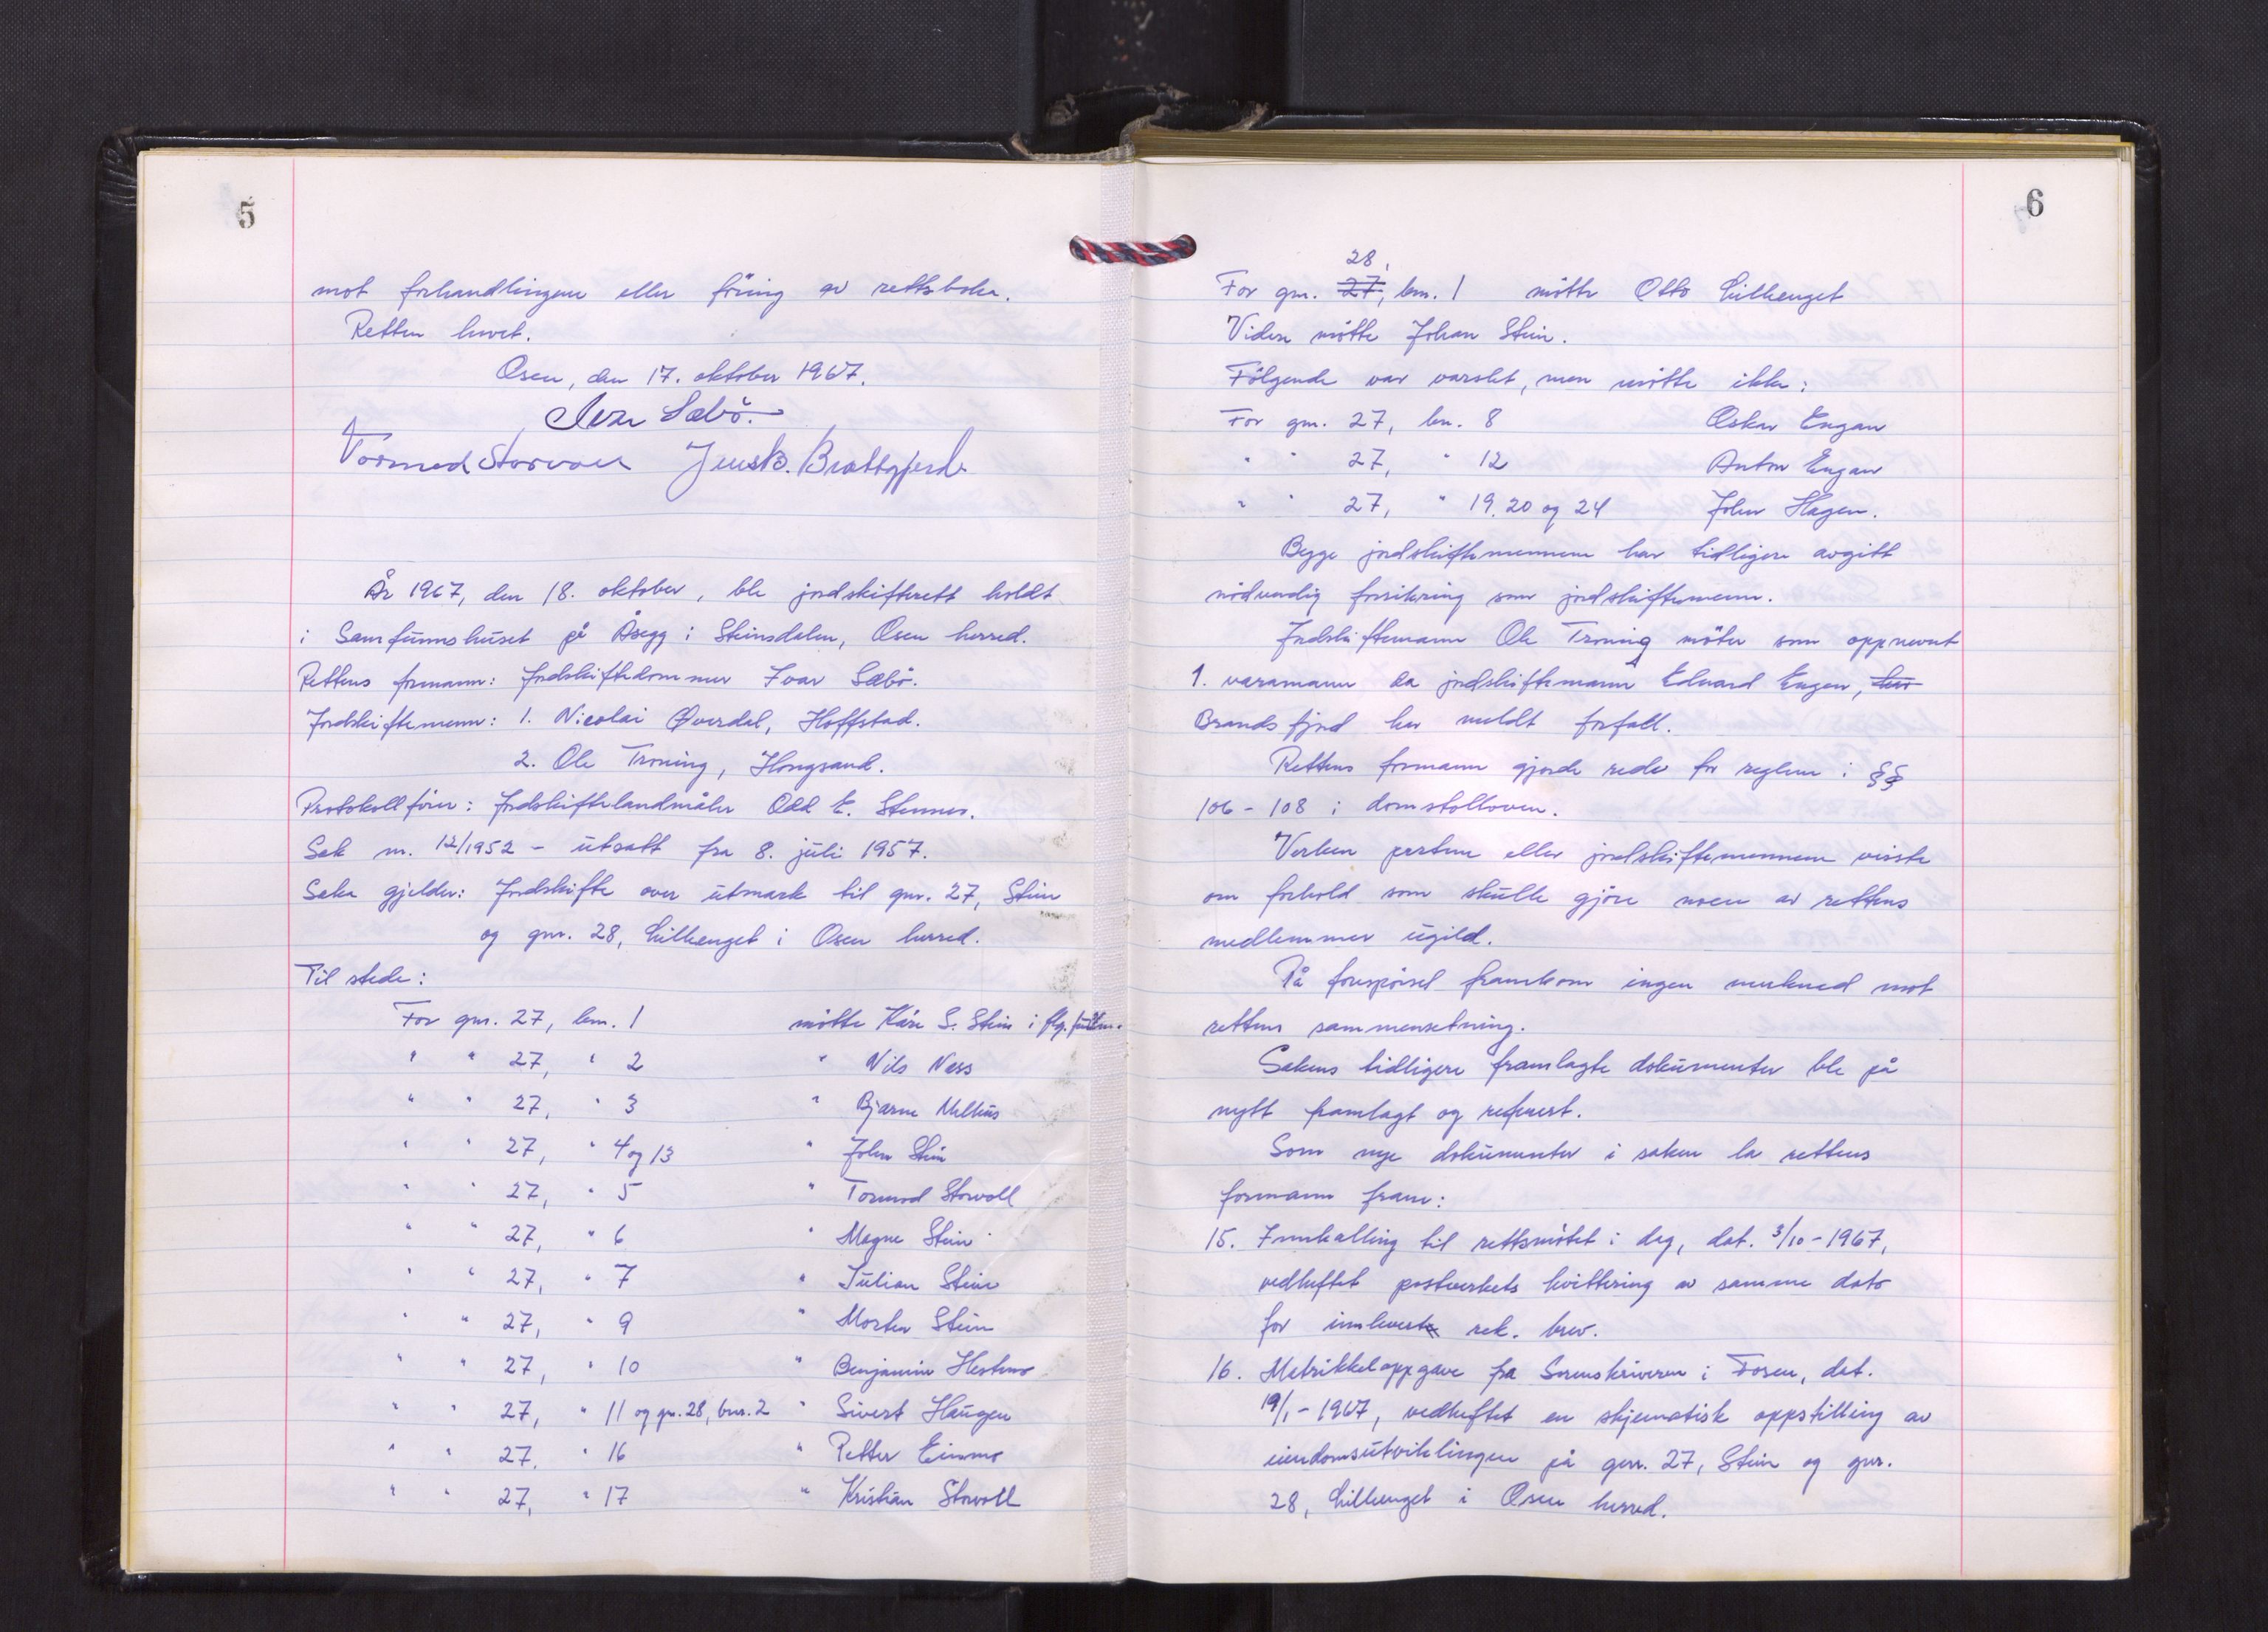 5
mot forhandlingene eller föring av rettsboka.
Retten hevet.
Osen, den 17. oktober 1967.
Ivar Sæbö.
Tormod Storvoll Jens B. Brattgjerd
År 1967, den 18. oktober, ble jordskifterett holdt
i Samfunnshuset på Åsegg i Steinsdalen, Osen herred.
Rettens formann: Jordskiftedommer Ivar Sæbö.
Jordskiftemenn: 1. Nicolai Øverdal, Hoffstad.
2. Ole Troning, Hongsand.
Protokollförer: Jordskiftelandmåler Odd E. Stennes.
Sak nr. 12/1952 - utsatt fra 8. juli 1957.
Saka gjelder: Jordskifte over utmark til gnr. 27, Stein
og gnr. 28, Lilleenget i Osen herred.
Til stede:
For gnr. 27, bnr. 1 mötte Kåre S. Stein i flg.
" " 27, " 2 " Nils Ness
" " 27, " 3 " Bjarne Melhus
" " 27, " 4 og 13 " John Stein
" " 27, " 5 " Tormod Storvoll
" " 27, " 6 " Magne Stein
" " 27, " 7 " Julian Stein
" " 27, " 9 " Morten Stein
" " 27, " 10 " Benjamin Hestmo
" " 27, " 11 og gnr. 28, bnr. 2 " Sivert Haugen
" " 27, " 16 " Petter Einmo
" " 27, " 17 " Kristian Storvoll
6
28,
For gnr. 27, bnr. 1 mötte Otto Lilleenget
Videre mötte Johan Stein.
Fölgende var varslet, men mötte ikke:
For gnr. 27, bnr. 8 Oskar Engan
" " 27, " 12 Anton Engan
" " 27, " 19, 20 og 24 John Hagen.
Begge jordskiftemennene har tidligere avgitt
nödvendig forsikring som jordskiftemenn.
Jordskiftemann Ole Troning möter som oppnevnt
1. varamann da jordskiftemann Edvard Engen, har
Brandsfjord har meldt forfall.
Rettens formann gjorde rede for reglene i §§
106 - 108 i domstolloven.
Verken partene eller jordskiftemennene visste
om forhold som skulle gjöre noen av rettens
medlemmer ugild.
På forespörsel framkom ingen merknad mot
rettens sammensetning.
Sakens tidligere framlagte dokumenter ble på
nytt framlagt og referert.
Som nye dokumenter i saken la rettens
formann fram:
15. Innkalling til rettsmötet i dag, dat. 3/10 - 1967,
vedheftet postverkets kvittering av samme dato
for innleverte rek. brev.
16. Matrikkeloppgave fra Sorenskriveren i Fosen, dat.
19/1 - 1967, vedheftet en skjematisk oppstilling av
eiendomsutviklingen på gnr. 27, Stein og gnr.
28, Lilleenget i Osen herred.